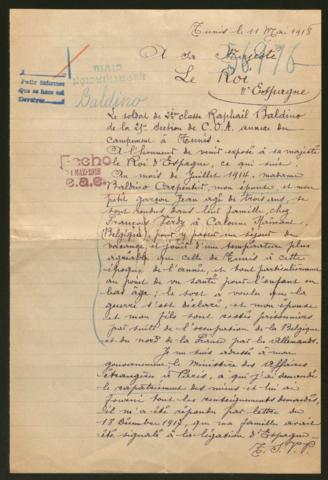 Tunis le 11 Mai 1918
56996
A sa Majesté
Le Roi
d'Espagne
Pedir informes
Que se hace con
Devolver
REPATRIACION
CIVIL
Baldino
Le soldat de 2e classe Raphaël Baldino
de la 25e Section de C.O.A. annexe du
campement à Tunis.
A l'honneur de venir exposé à sa majesté
le Roi d'Espagne, ce qui suit:
Au mois de Juillet 1914, madame
Baldino Carpentier, mon épouse, et mon
petit garçon Jean agé de trois ans, se
sont rendus dans leur famille, chez
François Hardy à Calonne Hainaut
(Belgique) pour y passer un séjour de
vacances et jouir d'une température plus
agréable que celle de Tunis à cette
époque de l'année, et tout particulièrement
au point de vu santé pour l'enfant en
bas âge; le sort a voulu que la
guerre s'est déclaré, et mon épouse
et mon fils sont restés prisonniers
par suite de l'occupation de la Belgique
et du nord de la France par les Allemands.
Je me suis adressé à mon
gouvernement, le Ministère des Affaires
étrangères à Paris, à qui j'ai demandé
le rapatriement des miens et lui ai
fourni tous les renseignements demandés,
il m'a été répondu par lettre du
18 Décembre 1917, que ma famille avait
été signalé à la légation d'Espagne
T. S. V. P.
Fecho
MAYO 1918
e.a.e.